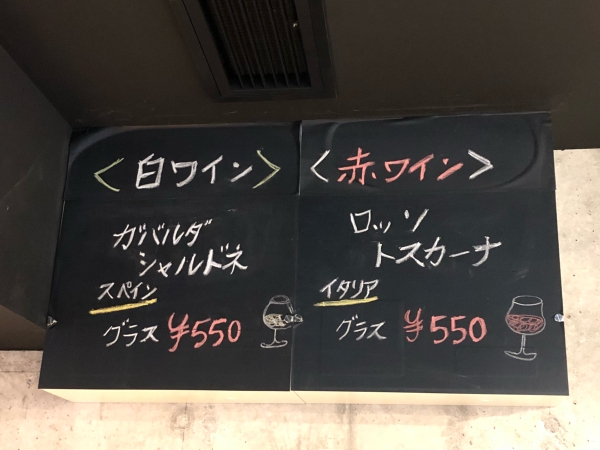 <白ワイン>
ガバルダ
シャルドネ
スペイン
グラス ¥550
<赤ワイン>
ロッソ
トスカーナ
イタリア
グラス ¥550